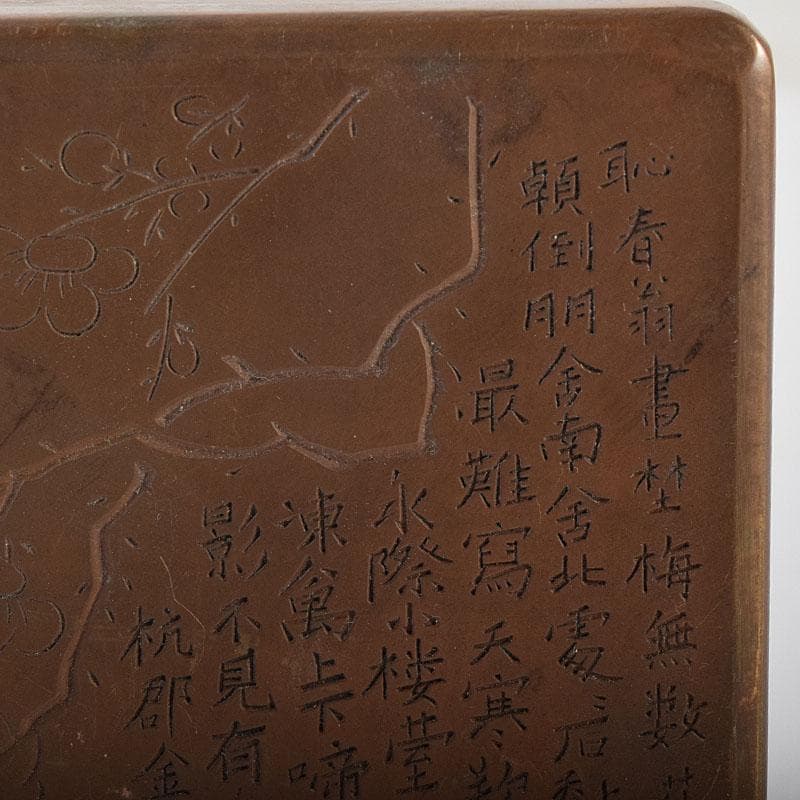 恥春翁畫埜梅無数
倒朋舍南舍北處〻
最難寫天寒
水際小楼
凍禽上下啼
影不見有
杭郡金